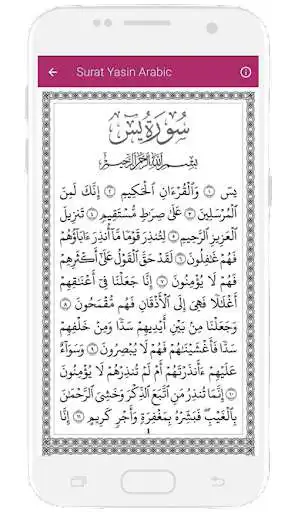 Surat Yasin Arabic
سُورَةُ يسٓ
بِسْمِ ٱللَّهِ ٱلرَّحْمَٰنِ ٱلرَّحِيمِ
يسٓ ١ وَٱلْقُرْءَانِ ٱلْحَكِيمِ ٢ إِنَّكَ لَمِنَ
ٱلْمُرْسَلِينَ ٣ عَلَىٰ صِرَٰطٍ مُّسْتَقِيمٍ ٤ تَنزِيلَ
ٱلْعَزِيزِ ٱلرَّحِيمِ ٥ لِتُنذِرَ قَوْمًا مَّآ أُنذِرَ ءَابَآؤُهُمْ
فَهُمْ غَٰفِلُونَ ٦ لَقَدْ حَقَّ ٱلْقَوْلُ عَلَىٰٓ أَكْثَرِهِمْ
فَهُمْ لَا يُؤْمِنُونَ ٧ إِنَّا جَعَلْنَا فِىٓ أَعْنَٰقِهِمْ
أَغْلَٰلًا فَهِىَ إِلَى ٱلْأَذْقَانِ فَهُم مُّقْمَحُونَ ٨
وَجَعَلْنَا مِنۢ بَيْنِ أَيْدِيهِمْ سَدًّا وَمِنْ خَلْفِهِمْ
سَدًّا فَأَغْشَيْنَٰهُمْ فَهُمْ لَا يُبْصِرُونَ ٩ وَسَوَآءٌ
عَلَيْهِمْ ءَأَنذَرْتَهُمْ أَمْ لَمْ تُنذِرْهُمْ لَا يُؤْمِنُونَ
١٠ إِنَّمَا تُنذِرُ مَنِ ٱتَّبَعَ ٱلذِّكْرَ وَخَشِىَ ٱلرَّحْمَٰنَ
بِٱلْغَيْبِ فَبَشِّرْهُ بِمَغْفِرَةٍ وَأَجْرٍ كَرِيمٍ ١١ إِنَّا
١